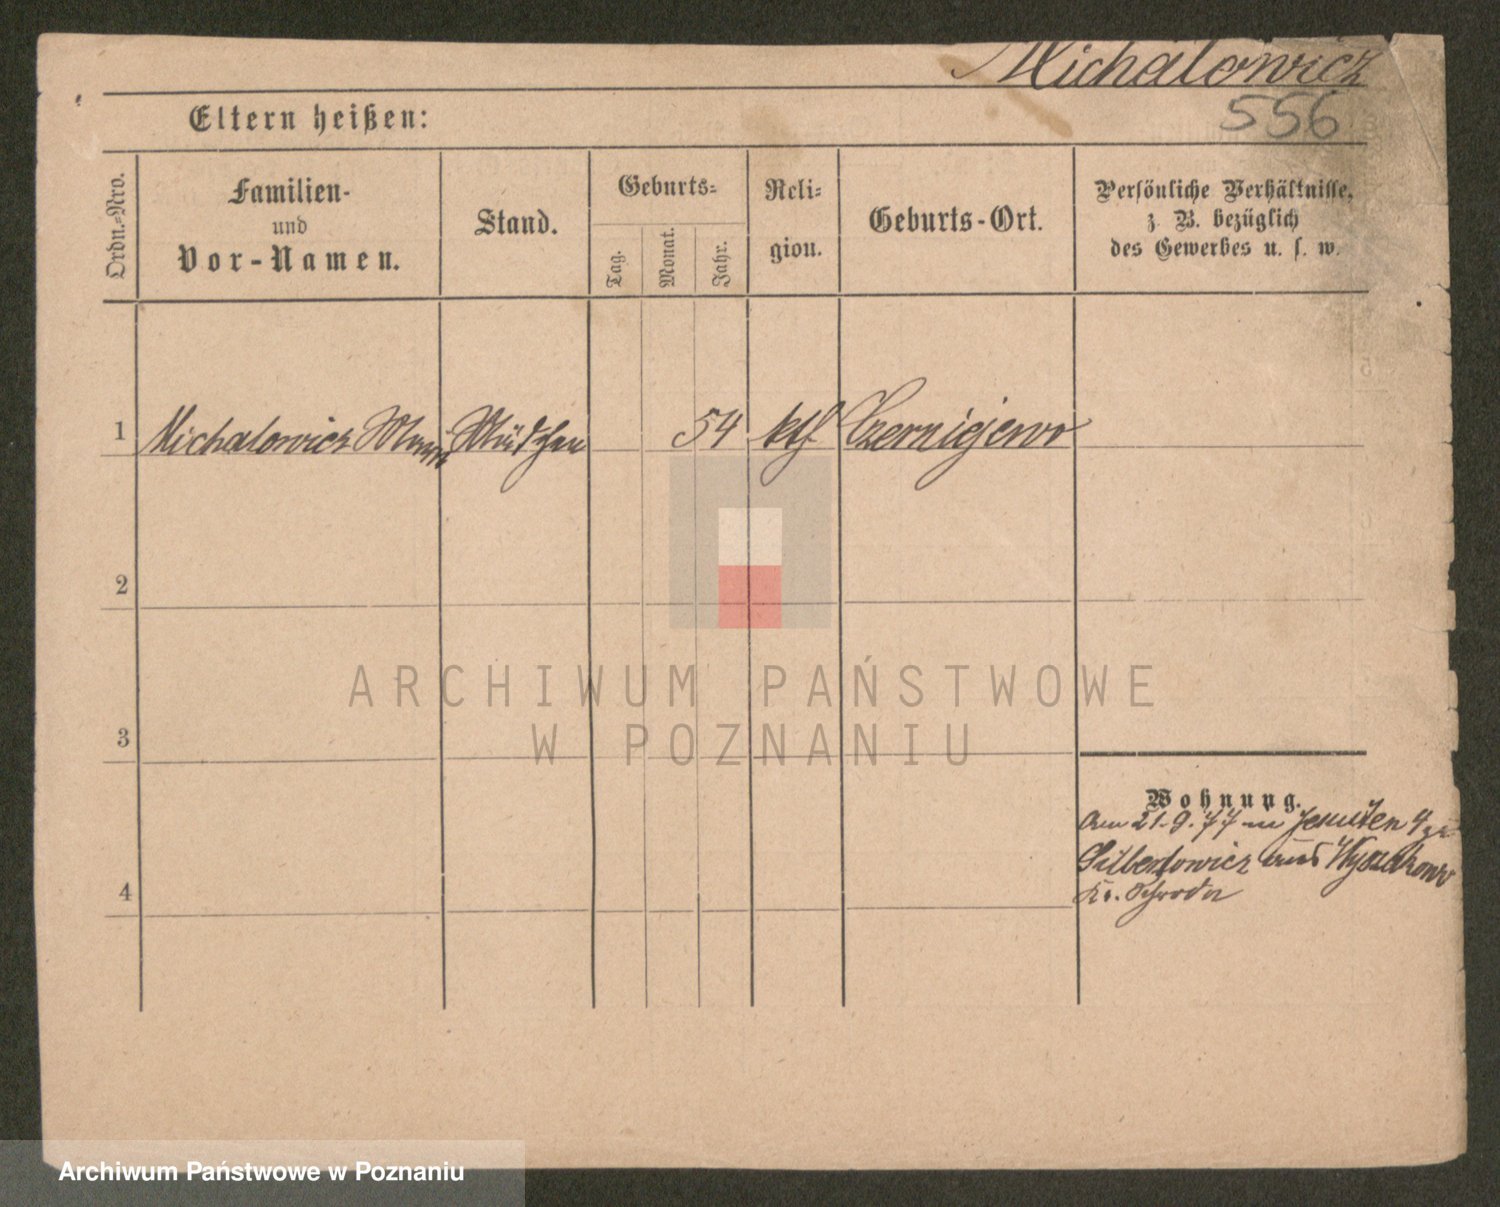 Michalowicz
556
Eltern heißen:
Ordn.-Nro.
Familien-
und
Vor-Namen.
Stand.
Geburts-
Tag.
Monat.
Jahr.
Reli-
gion.
Geburts-Ort.
Persönliche Verhältnisse,
z. B. bezüglich
des Gewerbes u. s. w.
1 Michalowicz 54 ktl Czerniejewo
2
3
4
Wohnung.
am 21.9.77 Jesuiten 4
aus
Kr. Schroda
ARCHIWUM PAŃSTWOWE
W POZNANIU
Archiwum Państwowe w Poznaniu